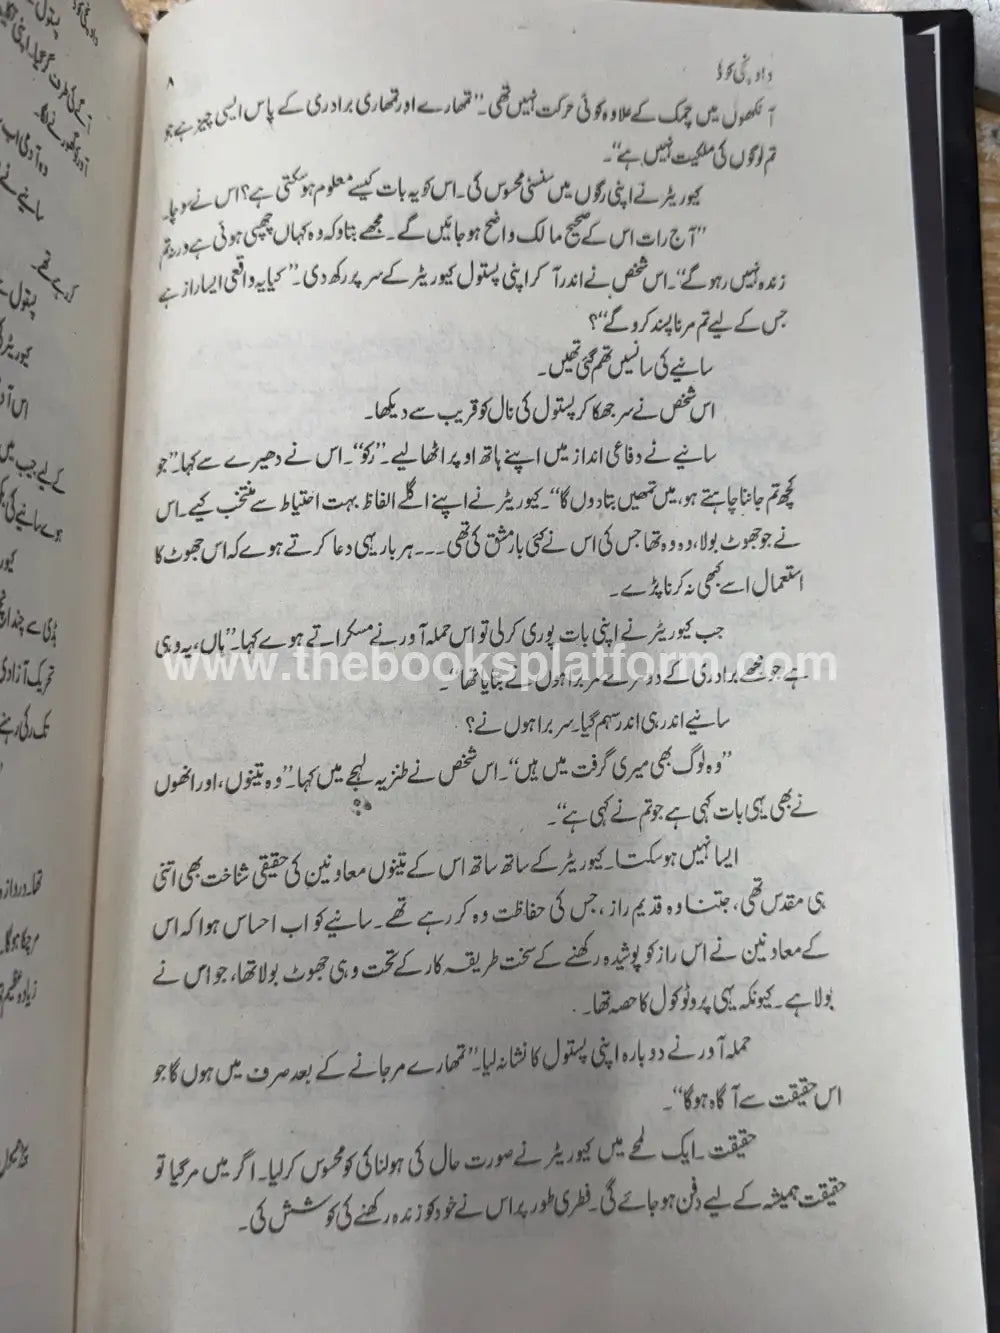 داونچی کوڈ
۸
آنکھوں میں چمک کے علاوہ کوئی حرکت نہیں تھی۔ ”تمھارے اور تمھاری برادری کے پاس ایسی چیز ہے جو
تم لوگوں کی ملکیت نہیں ہے“۔
کیوریٹر نے اپنی رگوں میں سنسنی محسوس کی۔ اس کو یہ بات کیسے معلوم ہو سکتی ہے؟ اس نے سوچا۔
”آج رات اس کے صحیح مالک واضح ہو جائیں گے۔ مجھے بتاو کہ وہ کہاں چھپی ہوئی ہے ورنہ تم
زندہ نہیں رہو گے“۔ اس شخص نے اندر آ کر اپنی پستول کیوریٹر کے سر پر رکھ دی۔ ”کیا یہ واقعی ایسا راز ہے
جس کے لیے تم مرنا پسند کرو گے“؟
سانیے کی سانسیں تھم گئی تھیں۔
اس شخص نے سر جھکا کر پستول کی نال کو قریب سے دیکھا۔
سانیے نے دفاعی انداز میں اپنے ہاتھ اوپر اٹھا لیے۔ ”رکو“۔ اس نے دھیرے سے کہا۔ ”جو
کچھ تم جاننا چاہتے ہو، میں تمھیں بتا دوں گا“۔ کیوریٹر نے اپنے اگلے الفاظ بہت احتیاط سے منتخب کیے۔ اس
نے جو جھوٹ بولا، وہ وہ تھا جس کی اس نے کئی بار مشق کی تھی۔۔۔ ہر بار یہی دعا کرتے ہوے کہ اس جھوٹ کا
استعمال اسے کبھی نہ کرنا پڑے۔
جب کیوریٹر نے اپنی بات پوری کرلی تو اس حملہ آور نے مسکراتے ہوے کہا۔ ”ہاں، یہ وہی
ہے جو مجھے برادری کے دوسرے سربراہوں نے بتایا تھا“۔
www.thebooksplatform.com
سانیے اندر ہی اندر سہم گیا۔ سربراہوں نے؟
”وہ لوگ بھی میری گرفت میں ہیں“۔ اس شخص نے طنزیہ لہجے میں کہا۔ ”وہ تینوں، اور انھوں
نے بھی یہی بات کہی ہے جو تم نے کہی ہے“۔
ایسا نہیں ہو سکتا۔ کیوریٹر کے ساتھ ساتھ اس کے تینوں معاونین کی حقیقی شناخت بھی اتنی
ہی مقدس تھی، جتنا وہ قدیم راز، جس کی حفاظت وہ کر رہے تھے۔ سانیے کو اب احساس ہوا کہ اس
کے معاونین نے اس راز کو پوشیدہ رکھنے کے سخت طریقہ کار کے تحت وہی جھوٹ بولا تھا، جو اس نے
بولا ہے۔ کیونکہ یہی پروٹوکول کا حصہ تھا۔
حملہ آور نے دوبارہ اپنی پستول کا نشانہ لیا۔ ”تمھارے مر جانے کے بعد صرف میں ہوں گا جو
اس حقیقت سے آگاہ ہوگا“۔
حقیقت۔ ایک لمحے میں کیوریٹر نے صورت حال کی ہولناکی کو محسوس کر لیا۔ اگر میں مر گیا تو
حقیقت ہمیشہ کے لیے دفن ہو جائے گی۔ فطری طور پر اس نے خود کو زندہ رکھنے کی کوشش کی۔